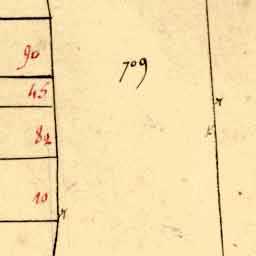 90
709
45
82
10